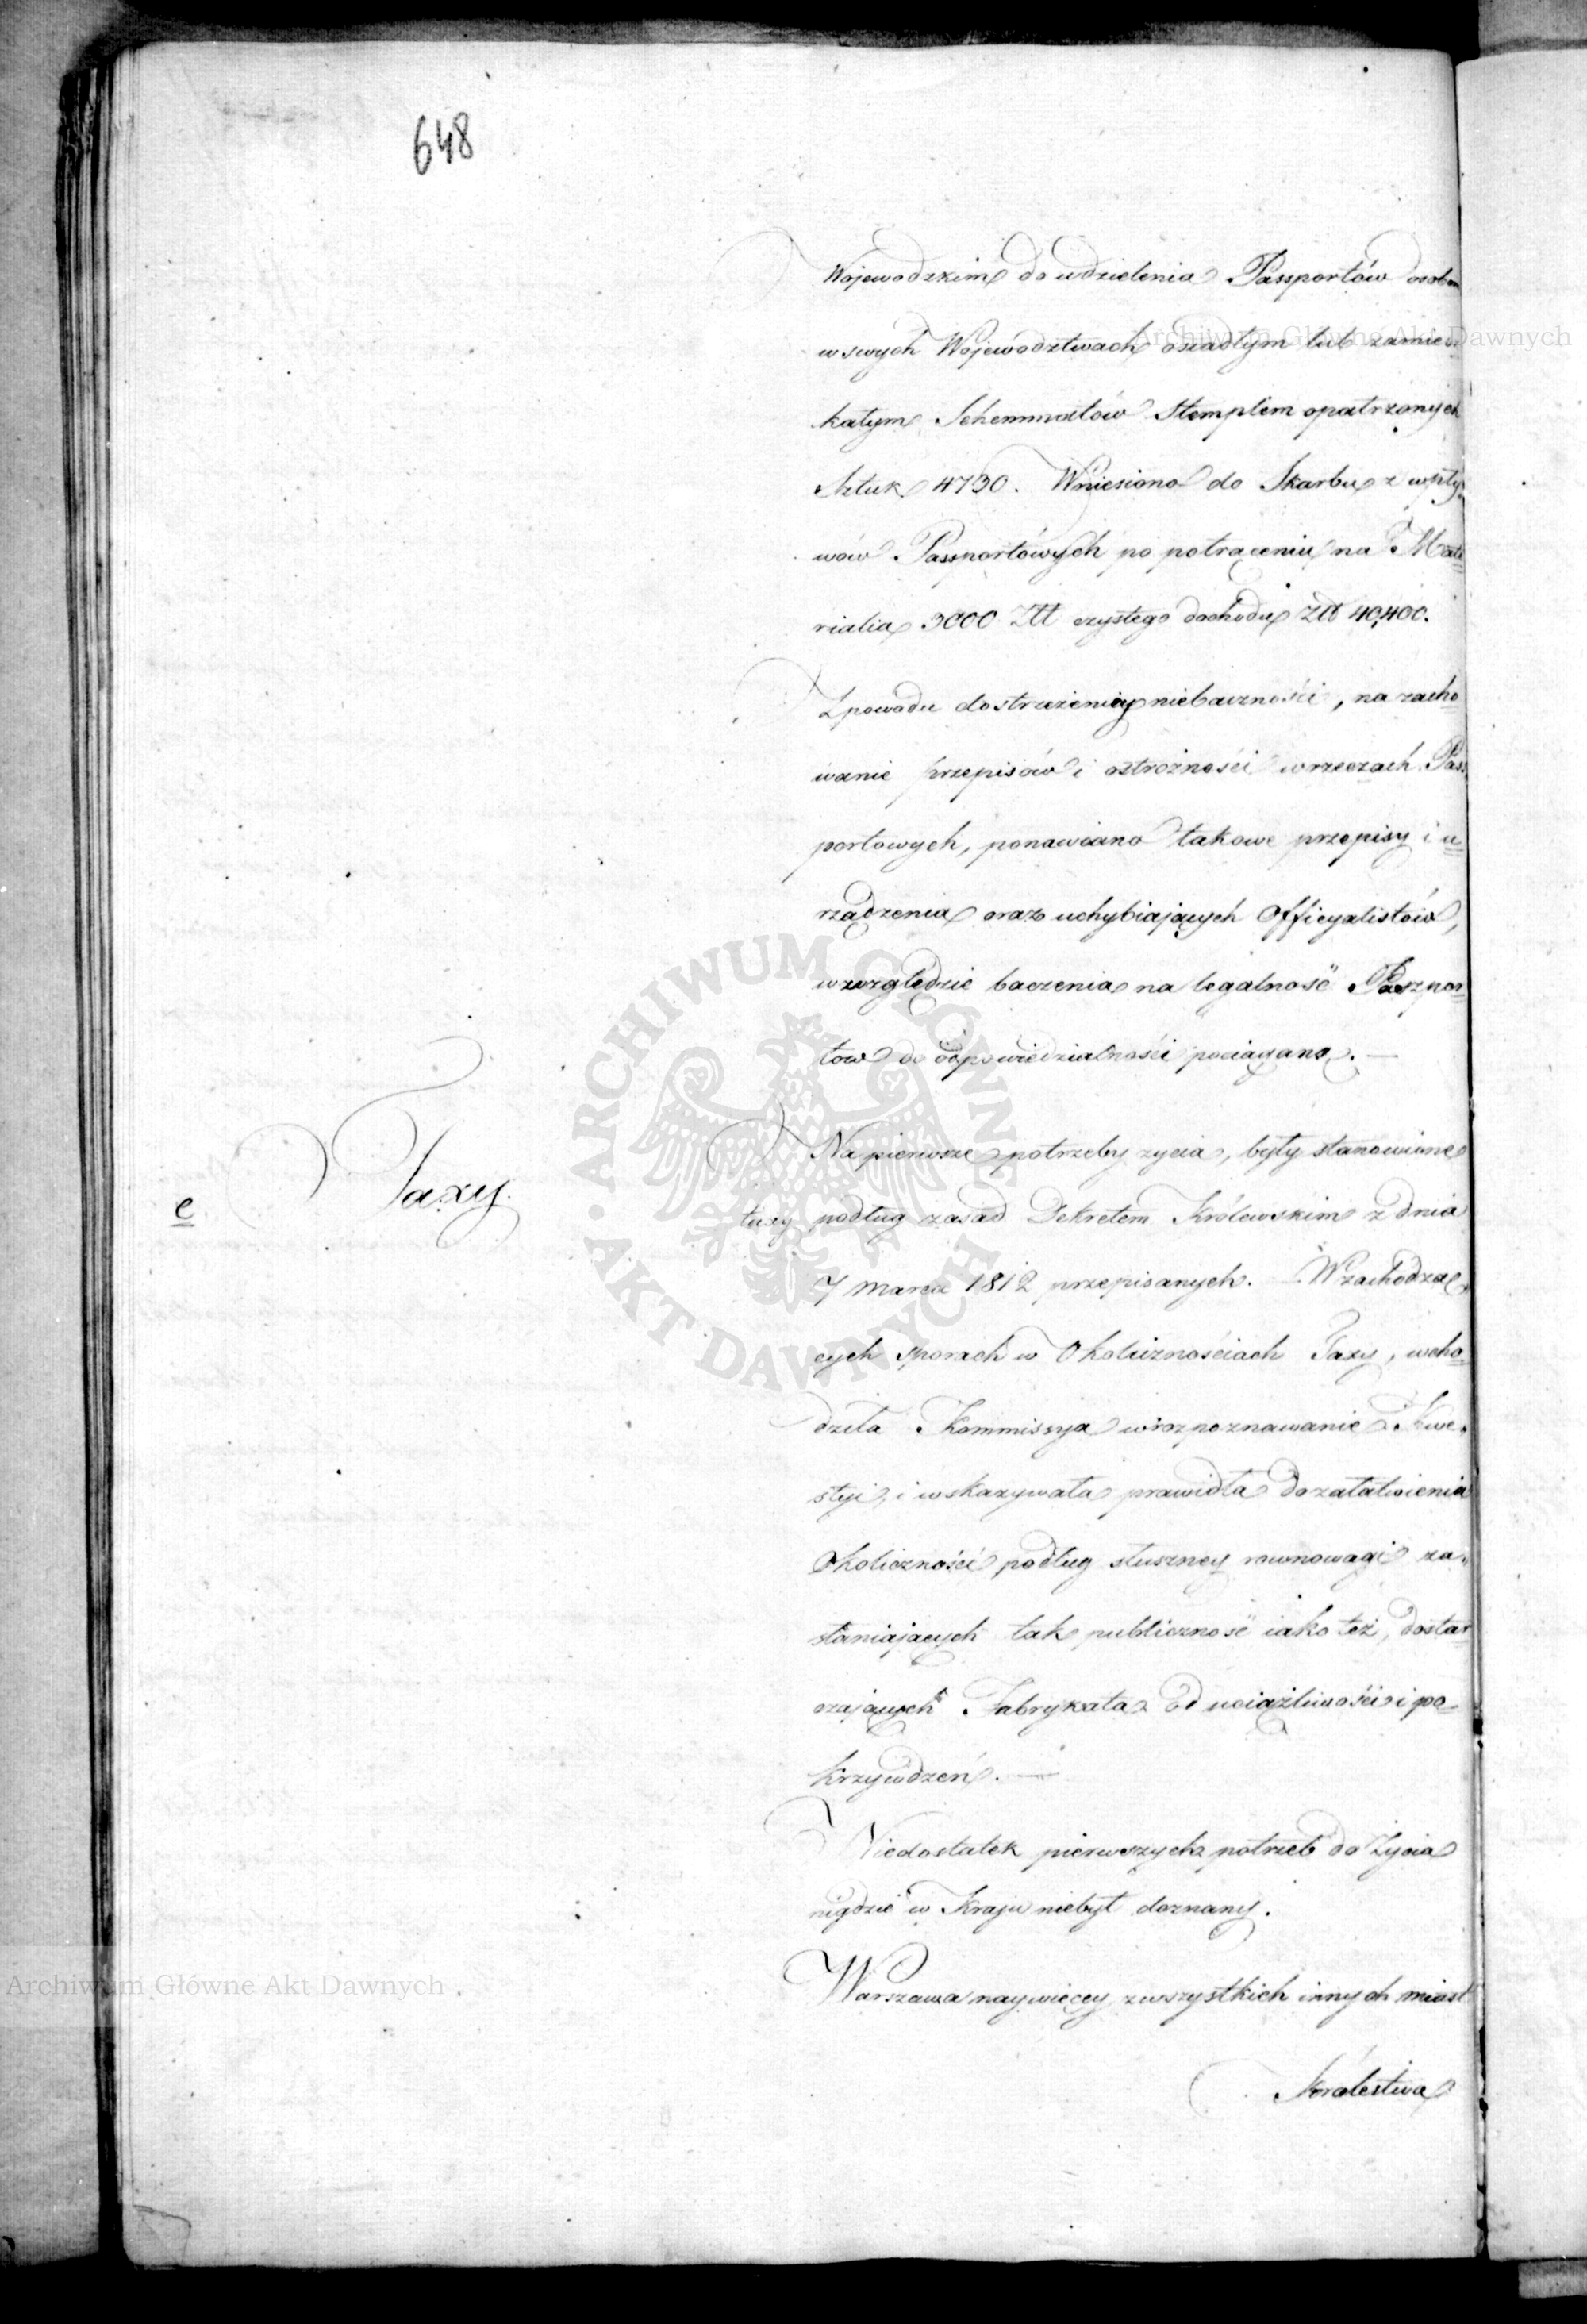 648
Wojewodzkim do udzielenia Passportów osobom
w swych Województwach osiadłym lub zamiesz
kałym Schemmatów Stemplem opatrzonych
Sztuk 4730. Wniesiono do Skarbu z wpły
wów Passportówych po potrąceniu na Mate
rialia 3000 Złł czystego dochodu Zł 40,400.
Z powodu dostrzeżeniey niebaczności, na zacho
wanie przepisów i ostrożności w rzeczach Pass
portowych, ponawiano takowe przepisy i u
rządzenia oraz uchybiających Officyalistów,
w względzie baczenia na legalność Paszpor
tów do odpowiedzialności pociągano. —
e Taxy.
Na pierwsze potrzeby zycia, były stanowione
taxy podług zasad Dekretem Królewskim z dnia
7 Marca 1812 przepisanych. W zachodzą
cych sporach w Okolicznościach Taxy, wcho
dziła Kommissyja w rozpoznawanie Kwe
styi, i wskazywała prawidła do załatwienia
Okoliczności podług słuszney rownowagi za
słaniających tak publiczność iako też, dostar
czających Fabrykata od uciążliwości i po
krzywdzeń. —
Niedostatek pierwszych potrzeb do Życia
nigdzie w Kraju niebył doznany.
Warszawa naywięcey z wszystkich innych miast
Królestwa
Archiwum Główne Akt Dawnych
Archiwum Główne Akt Dawnych
ARCHIWUM GŁÓWNE AKT DAWNYCH